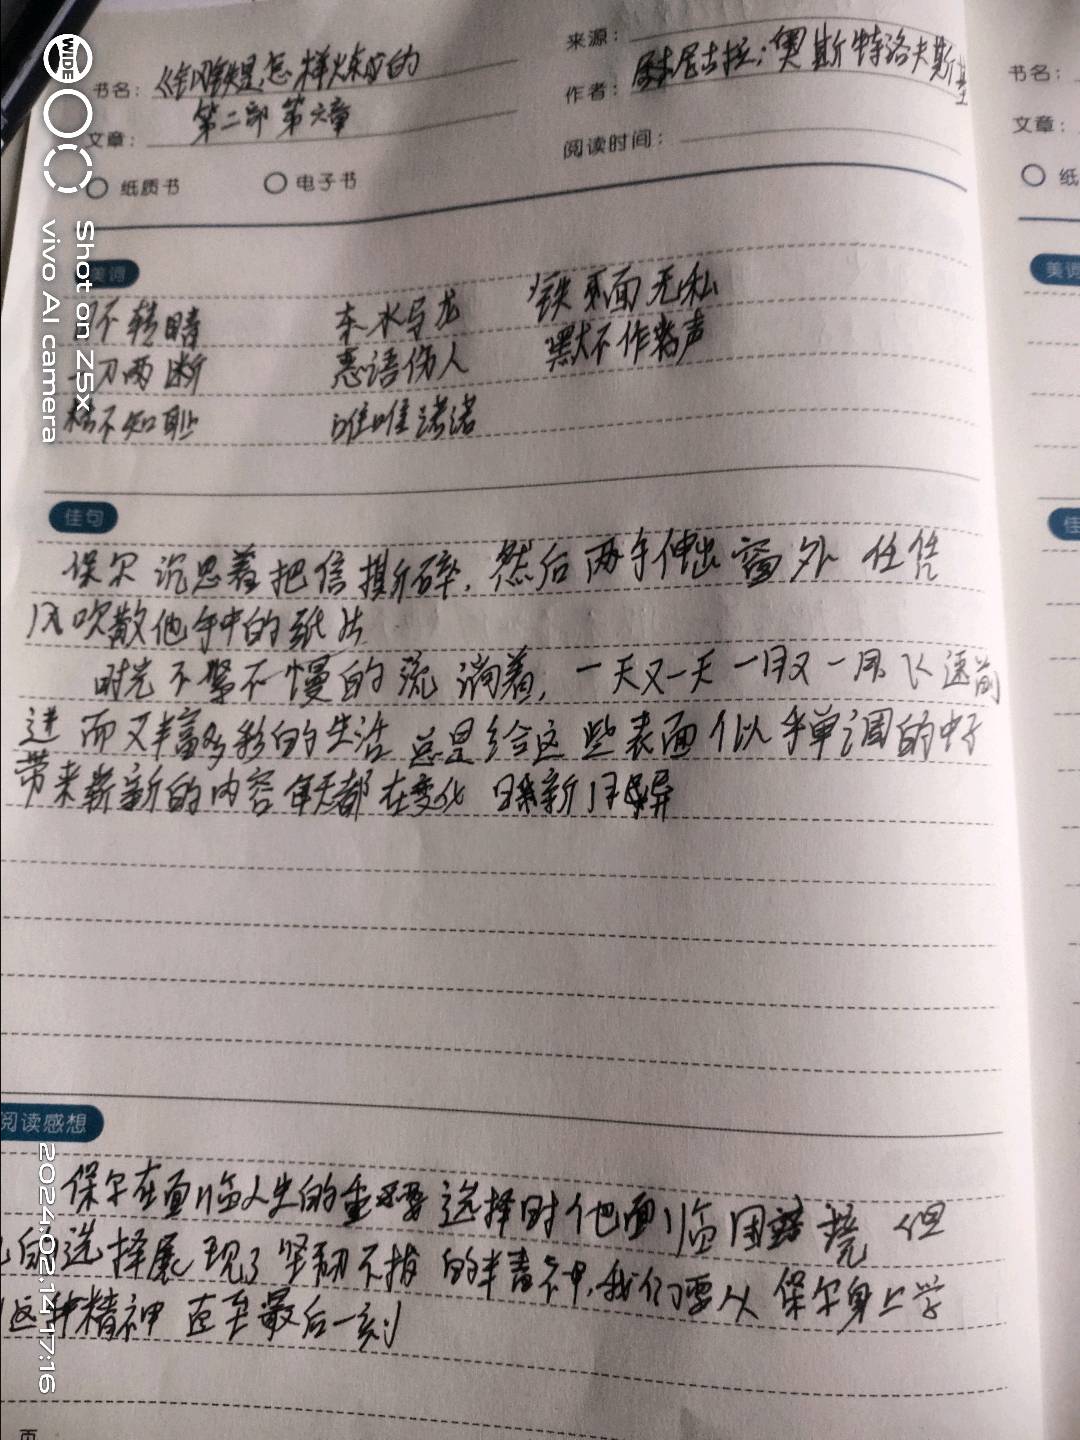 来源：
书名：《钢铁是怎样炼成的
作者：尼古拉：奥斯特洛夫斯基
文章：第二部 第六章
阅读时间：
纸质书 电子书
书名：
文章：
纸
美词
不转睛 车水马龙 铁面无私
一刀两断 恶语伤人 默不作声
不知耻 唯唯诺诺
美词
佳句
保尔沉思着把信撕碎，然后两手伸出窗外 任凭
风吹散他手中的纸片
时光不紧不慢的流淌着，一天又一天 一月又一月 飞速前
进 而又丰富多彩的生活 总是给这些表面似乎单调的日子
带来崭新的内容 每天都在变化 日新月异
佳
阅读感想
保尔在面临人生的重要选择时他面临困境 但
的选择展现了坚韧不拔的精神，我们要从保尔身上学
这种精神 直至最后一刻
页
WIDE
Shot on Z5x
vivo AI camera
2024.02.14 17:16